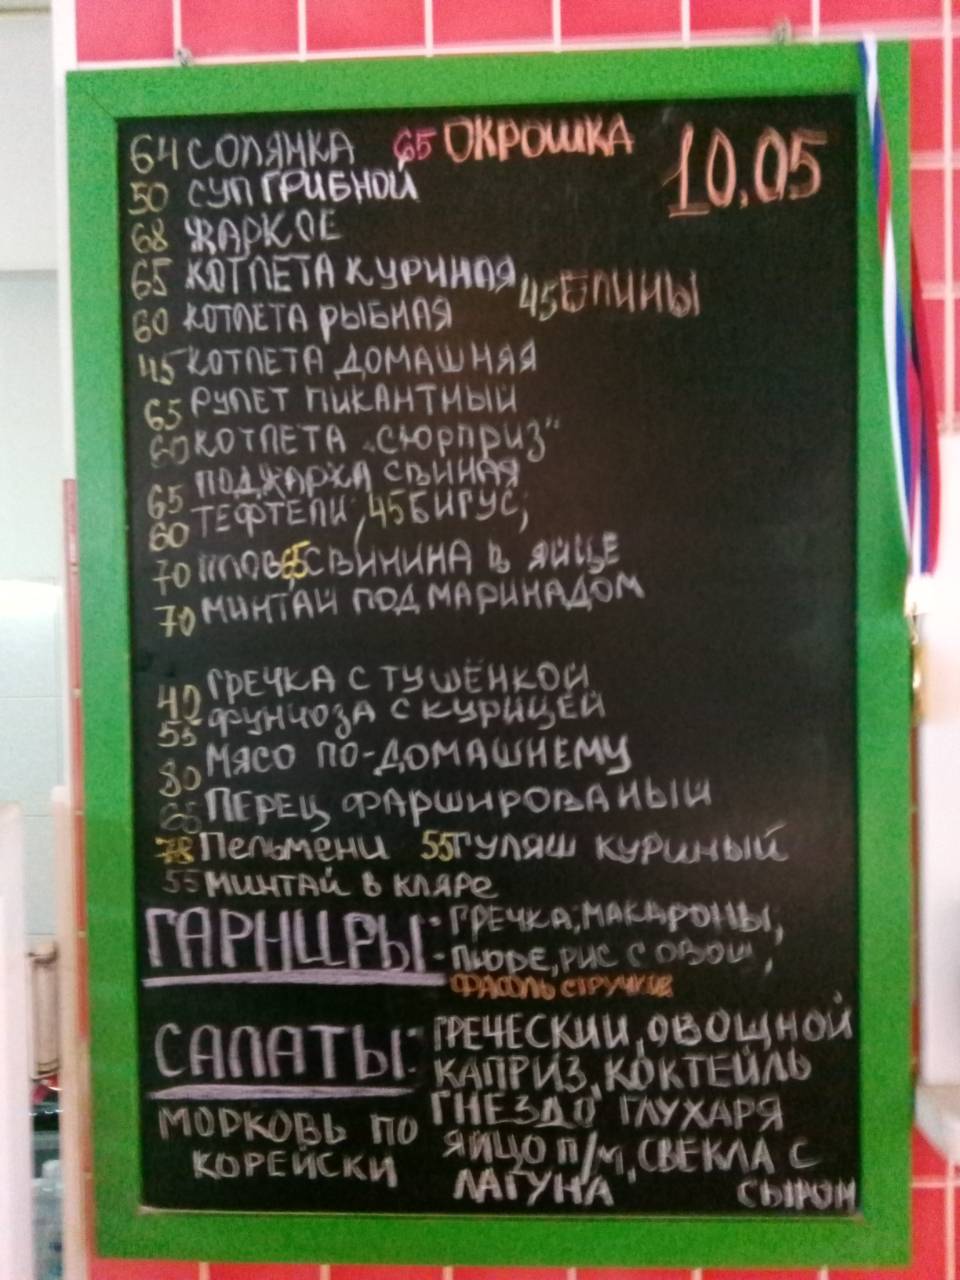 64 СОЛЯНКА 65 ОКРОШКА 10.05
50 СУП ГРИБНОЙ
68 ЖАРКОЕ
65 КОТЛЕТА КУРИНАЯ 45 БЛИНЫ
60 КОТЛЕТА РЫБНАЯ
45 КОТЛЕТА ДОМАШНЯЯ
65 РУЛЕТ ПИКАНТНЫЙ
60 КОТЛЕТА „СЮРПРИЗ"
65 ПОДЖАРКА СВИНАЯ
60 ТЕФТЕЛИ, 45 БИГУС,
70 ПЛОВ, 65 СВИНИНА В ЯЙЦЕ
70 МИНТАЙ ПОД МАРИНАДОМ
40 ГРЕЧКА С ТУШЁНКОЙ
55 ФУНЧОЗА С КУРИЦЕЙ
80 МЯСО ПО-ДОМАШНЕМУ
65 ПЕРЕЦ ФАРШИРОВАНЫЙ
78 Пельмени 55 ГУЛЯШ КУРИНЫЙ
55 МИНТАЙ В КЛЯРЕ
ГАРНИРЫ: ГРЕЧКА, МАКАРОНЫ,
ПЮРЕ, РИС С ОВОЩ,
ФАСОЛЬ СТРУЧКОВ
САЛАТЫ: ГРЕЧЕСКИЙ, ОВОЩНОЙ
КАПРИЗ, КОКТЕЙЛЬ
ГНЕЗДО ГЛУХАРЯ
ЯЙЦО П/М, СВЕКЛА С
ЛАГУНА СЫРОМ
МОРКОВЬ ПО
КОРЕЙСКИ